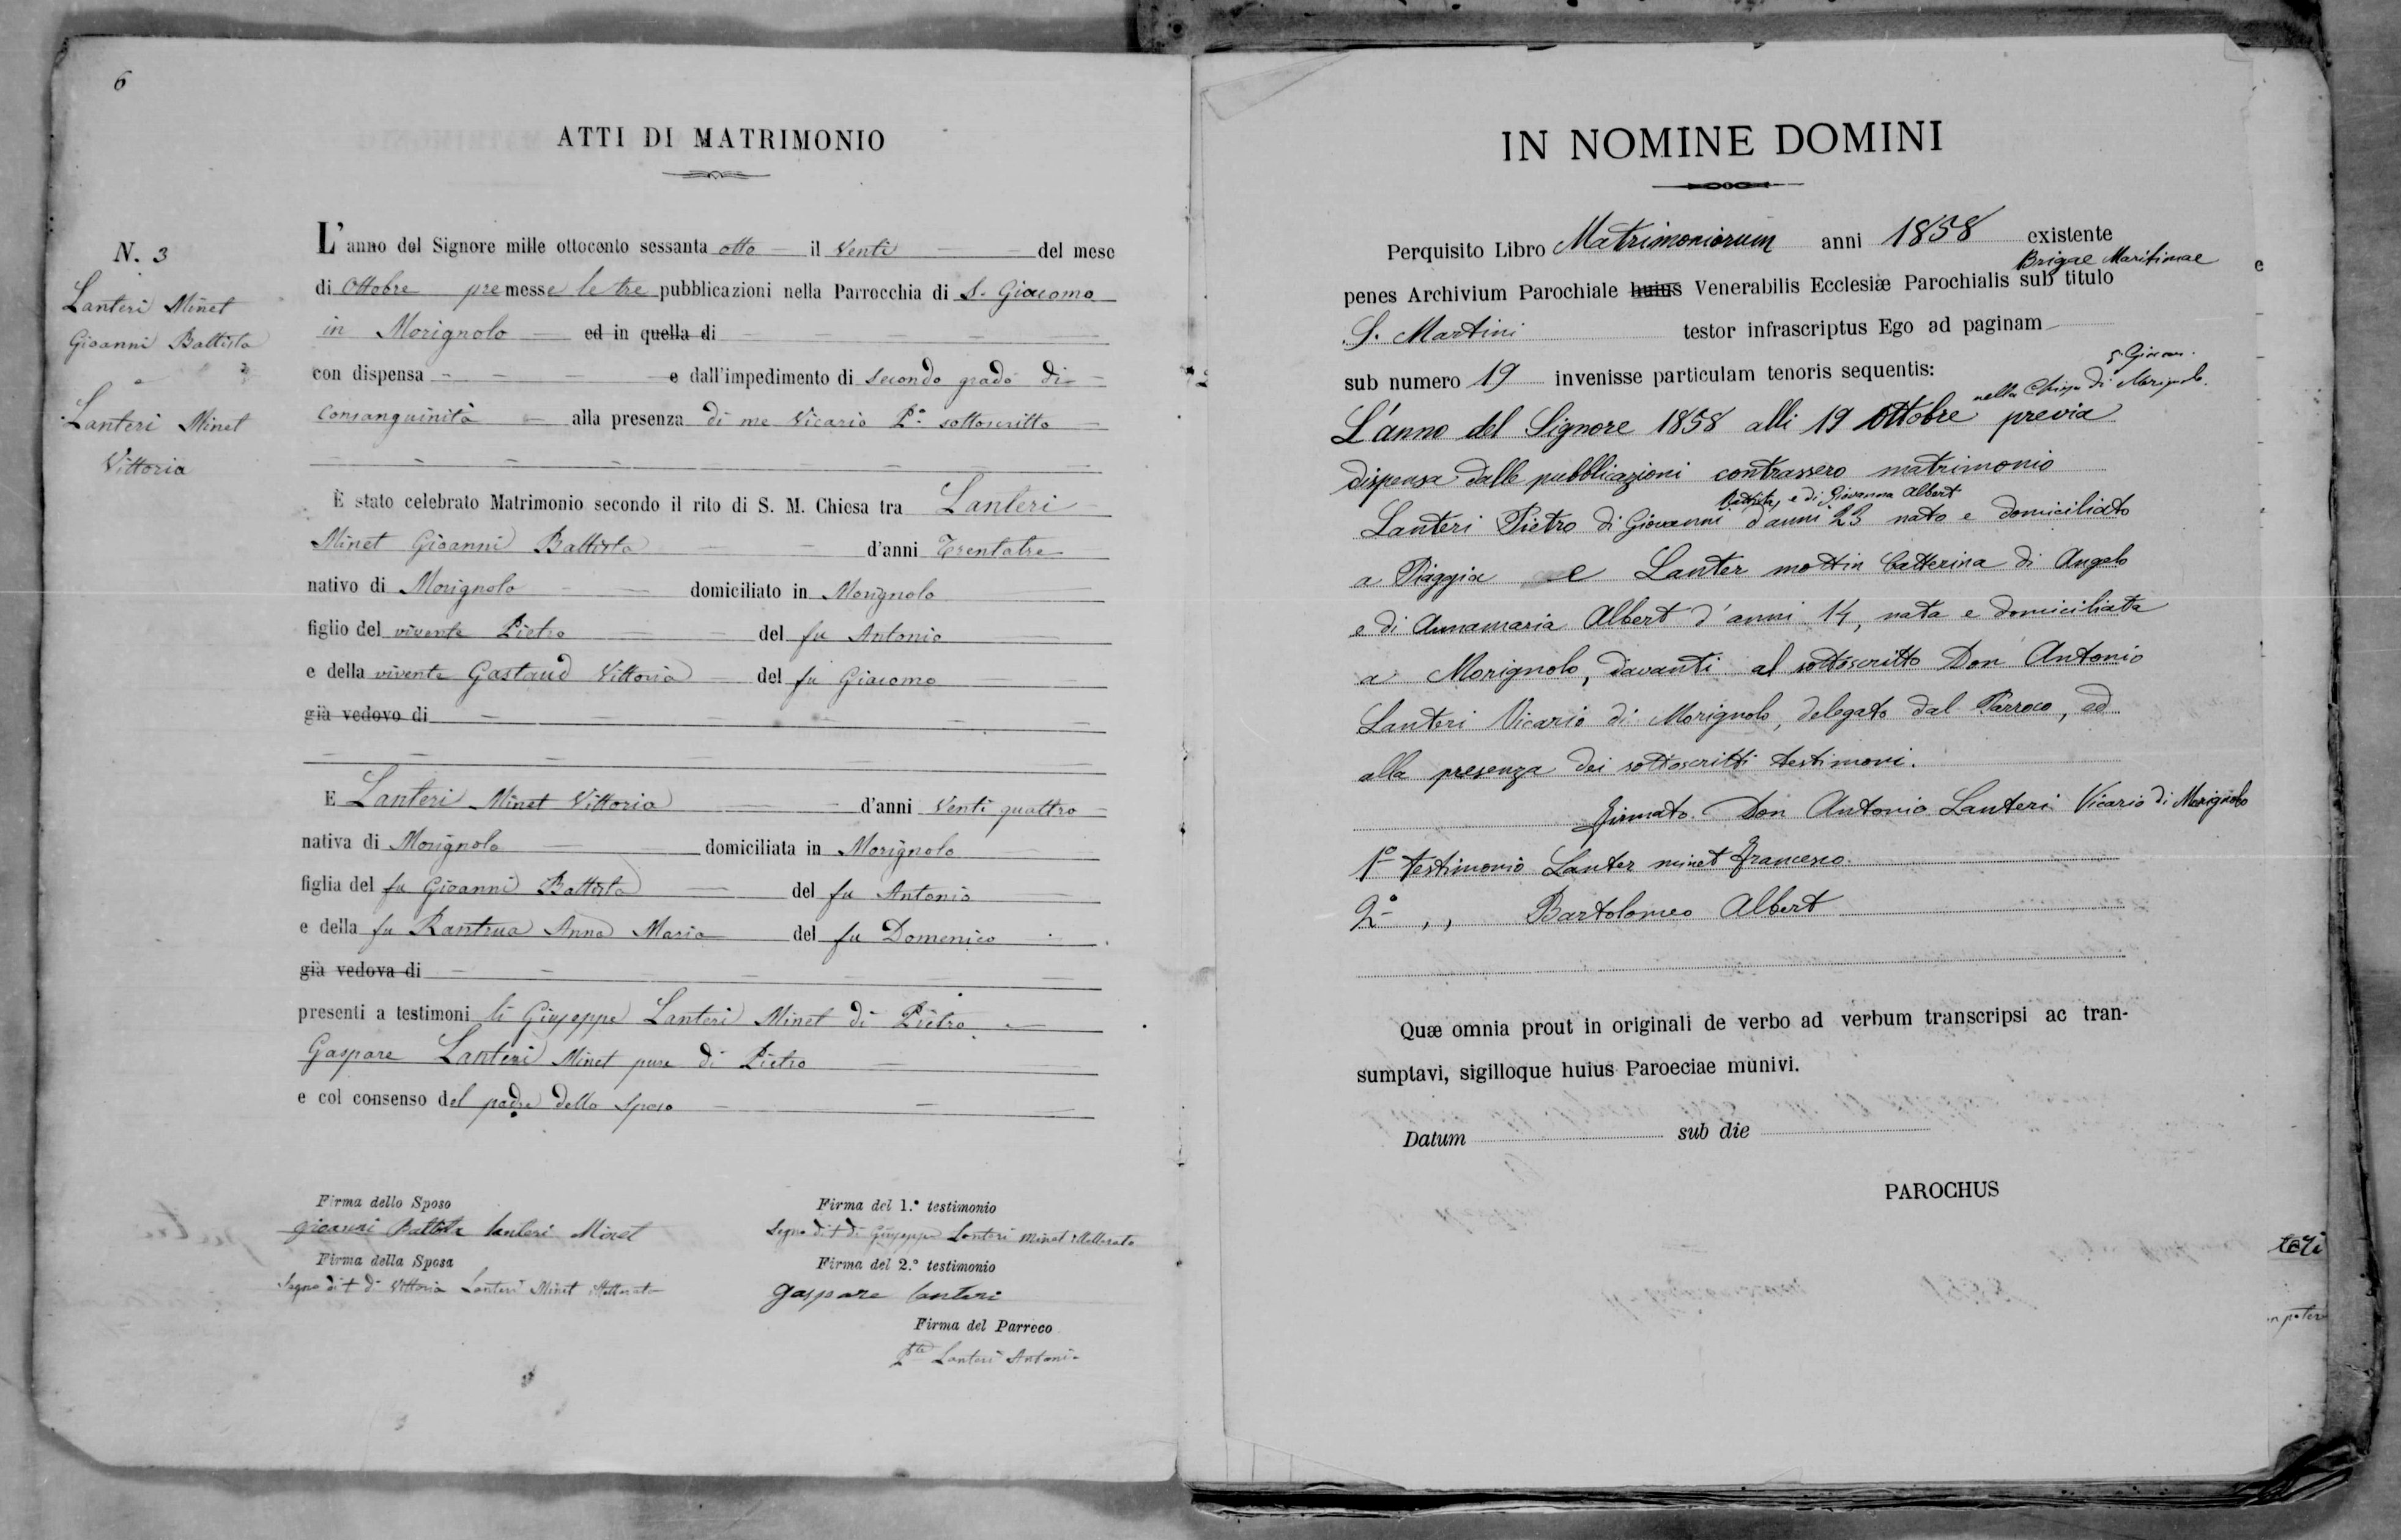 6
ATTI DI MATRIMONIO
N. 3
Lanteri Minet
Gioanni Battista
e
Lanteri Minet
Vittoria
L'anno del Signore mille ottocento sessanta otto il Venti del mese
di Ottobre premesse le tre pubblicazioni nella Parrocchia di S. Giacomo
in Morignolo ed in quella di
con dispensa e dall'impedimento di secondo grado di
Consanguinità alla presenza di me Vicario P.° sottoscritto
È stato celebrato Matrimonio secondo il rito di S. M. Chiesa tra Lanteri
Minet Gioanni Battista d'anni Trentatre
nativo di Morignolo domiciliato in Morignolo
figlio del vivente Pietro del fu Antonio
e della vivente Gastaud Vittoria del fu Giacomo
già vedovo di
E Lanteri Minet Vittoria d'anni Venti quattro
nativa di Morignolo domiciliata in Morignolo
figlia del fu Gioanni Battista del fu Antonio
e della fu Rantrua Anna Maria del fu Domenico
già vedova di
presenti a testimoni li Giuseppe Lanteri Minet di Pietro
Gaspare Lanteri Minet pure di Pietro
e col consenso del padre dello sposo
Firma dello Sposo
gioanni Battista lanteri Minet
Firma della Sposa
Segno di + di Vittoria Lanteri Minet illetterata
Firma del 1.° testimonio
Segno di + di Giuseppe Lanteri Minet illetterato
Firma del 2.° testimonio
gaspare lanteri
Firma del Parroco
Lanteri Antonio
IN NOMINE DOMINI
Perquisito Libro Matrimoniorum anni 1858 existente
Brigae Maritimae
penes Archivium Parochiale huius Venerabilis Ecclesiæ Parochialis sub titulo
S. Martini testor infrascriptus Ego ad paginam
sub numero 19 invenisse particulam tenoris sequentis:
S. Giacom.
nella Chiesa di Morignolo.
L'anno del Signore 1858 alli 19 Ottobre previa
dispensa dalle pubblicazioni contrassero matrimonio
Battista, e di Giovanna Albert
Lanteri Pietro di Giovanni d'anni 23 nato e domiciliato
a Piaggia e Lanter mottin Catterina di Angelo
e di Annamaria Albert d'anni 14, nata e domiciliata
a Morignolo, davanti al sottoscritto Don Antonio
Lanteri Vicario di Morignolo, delegato dal Parroco, ed
alla presenza dei sottoscritti testimoni.
firmato. Don Antonio Lanteri Vicario di Morignolo
1° testimonio Lanter minet Francesco.
2° ,, Bartolomeo Albert
Quæ omnia prout in originali de verbo ad verbum transcripsi ac tran-
sumptavi, sigilloque huius Paroeciae munivi.
Datum sub die
PAROCHUS
e